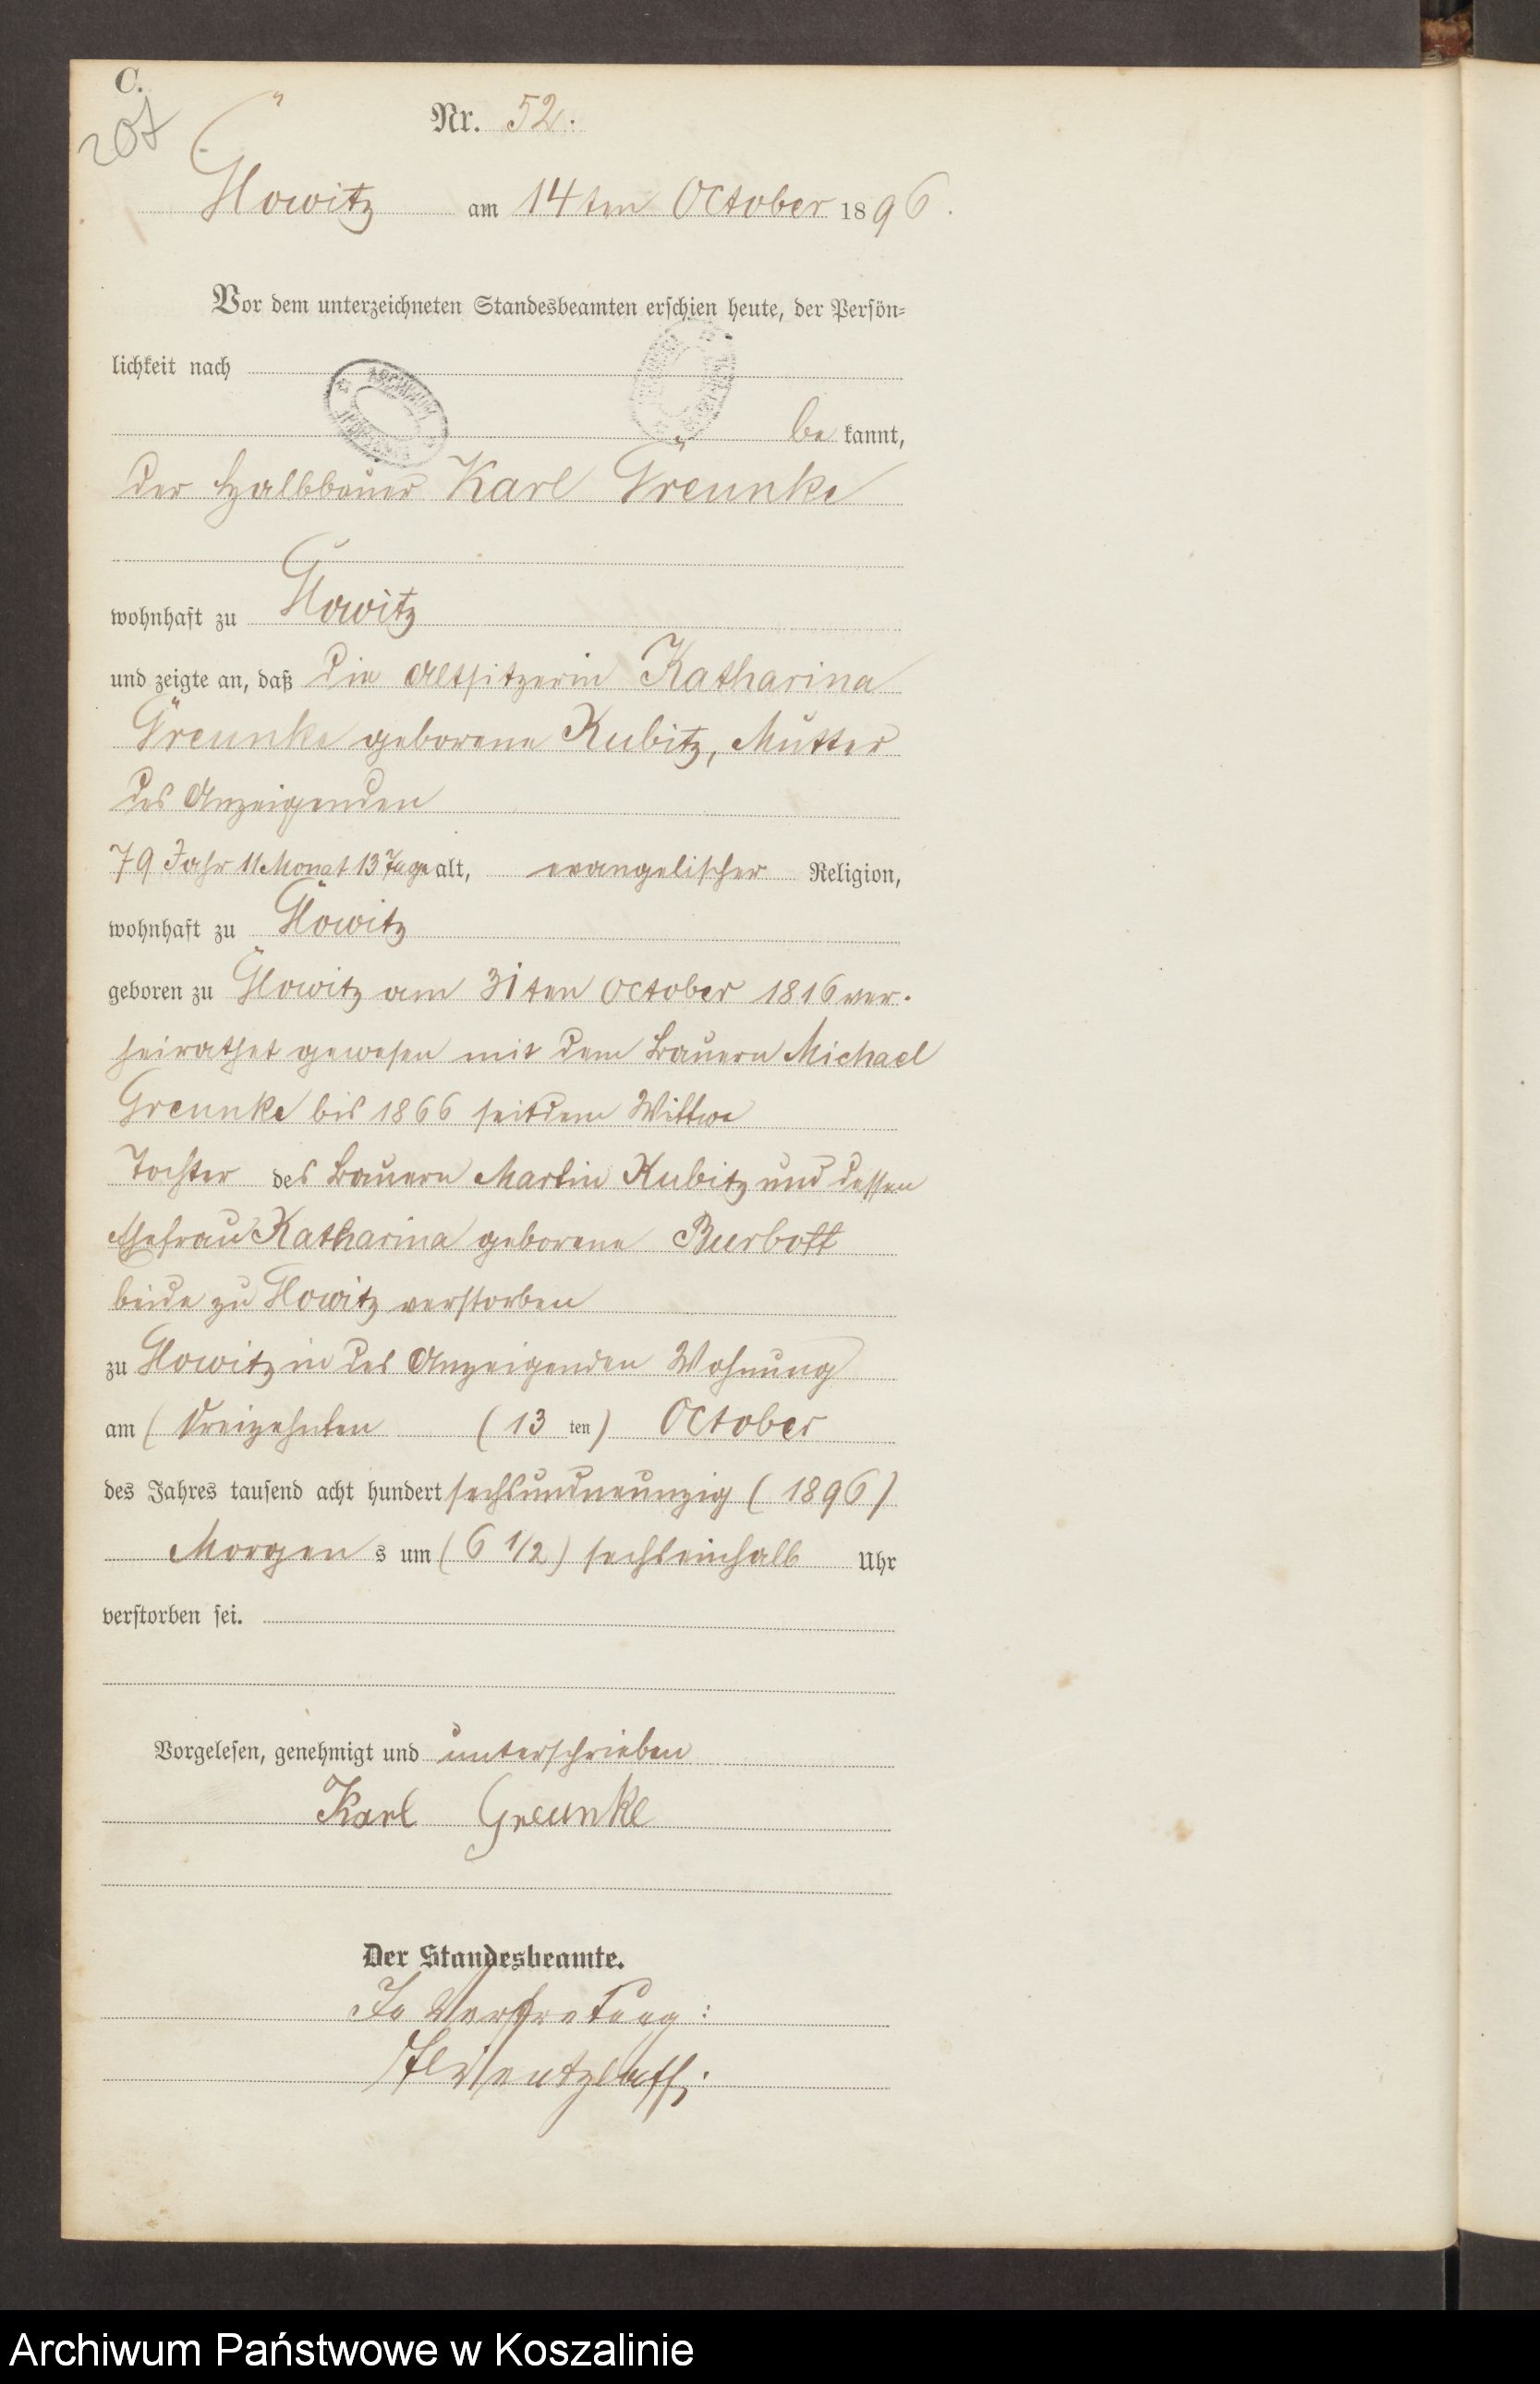 C.
207
Nr. 52.
Glowitz am 14ten October 1896.
Vor dem unterzeichneten Standesbeamten erschien heute, der Persön-
lichkeit nach
be kannt,
der Halbbauer Karl Greunke
wohnhaft zu Glowitz
und zeigte an, daß die Altsitzerin Katharina
Greunke geborene Kubitz, Mutter
des Anzeigenden
79 Jahr 11 Monat 13 Tage alt, evangelischer Religion,
wohnhaft zu Glowitz
geboren zu Glowitz am 31ten October 1816 ver-
heirathet gewesen mit dem Bauern Michael
Greunke bis 1866 seitdem Wittwe
Tochter des Bauern Martin Kubitz und dessen
Ehefrau Katharina geborene Burbott
beide zu Glowitz verstorben
zu Glowitz in des Anzeigenden Wohnung
am (dreizehnten (13 ten) October
des Jahres tausend acht hundert sechsundneunzig (1896)
Morgen s um (6 1/2) sechseinhalb Uhr
verstorben sei.
Vorgelesen, genehmigt und unterschrieben
Karl Greunke
Der Standesbeamte.
In Vertretung:
Archiwum Państwowe w Koszalinie